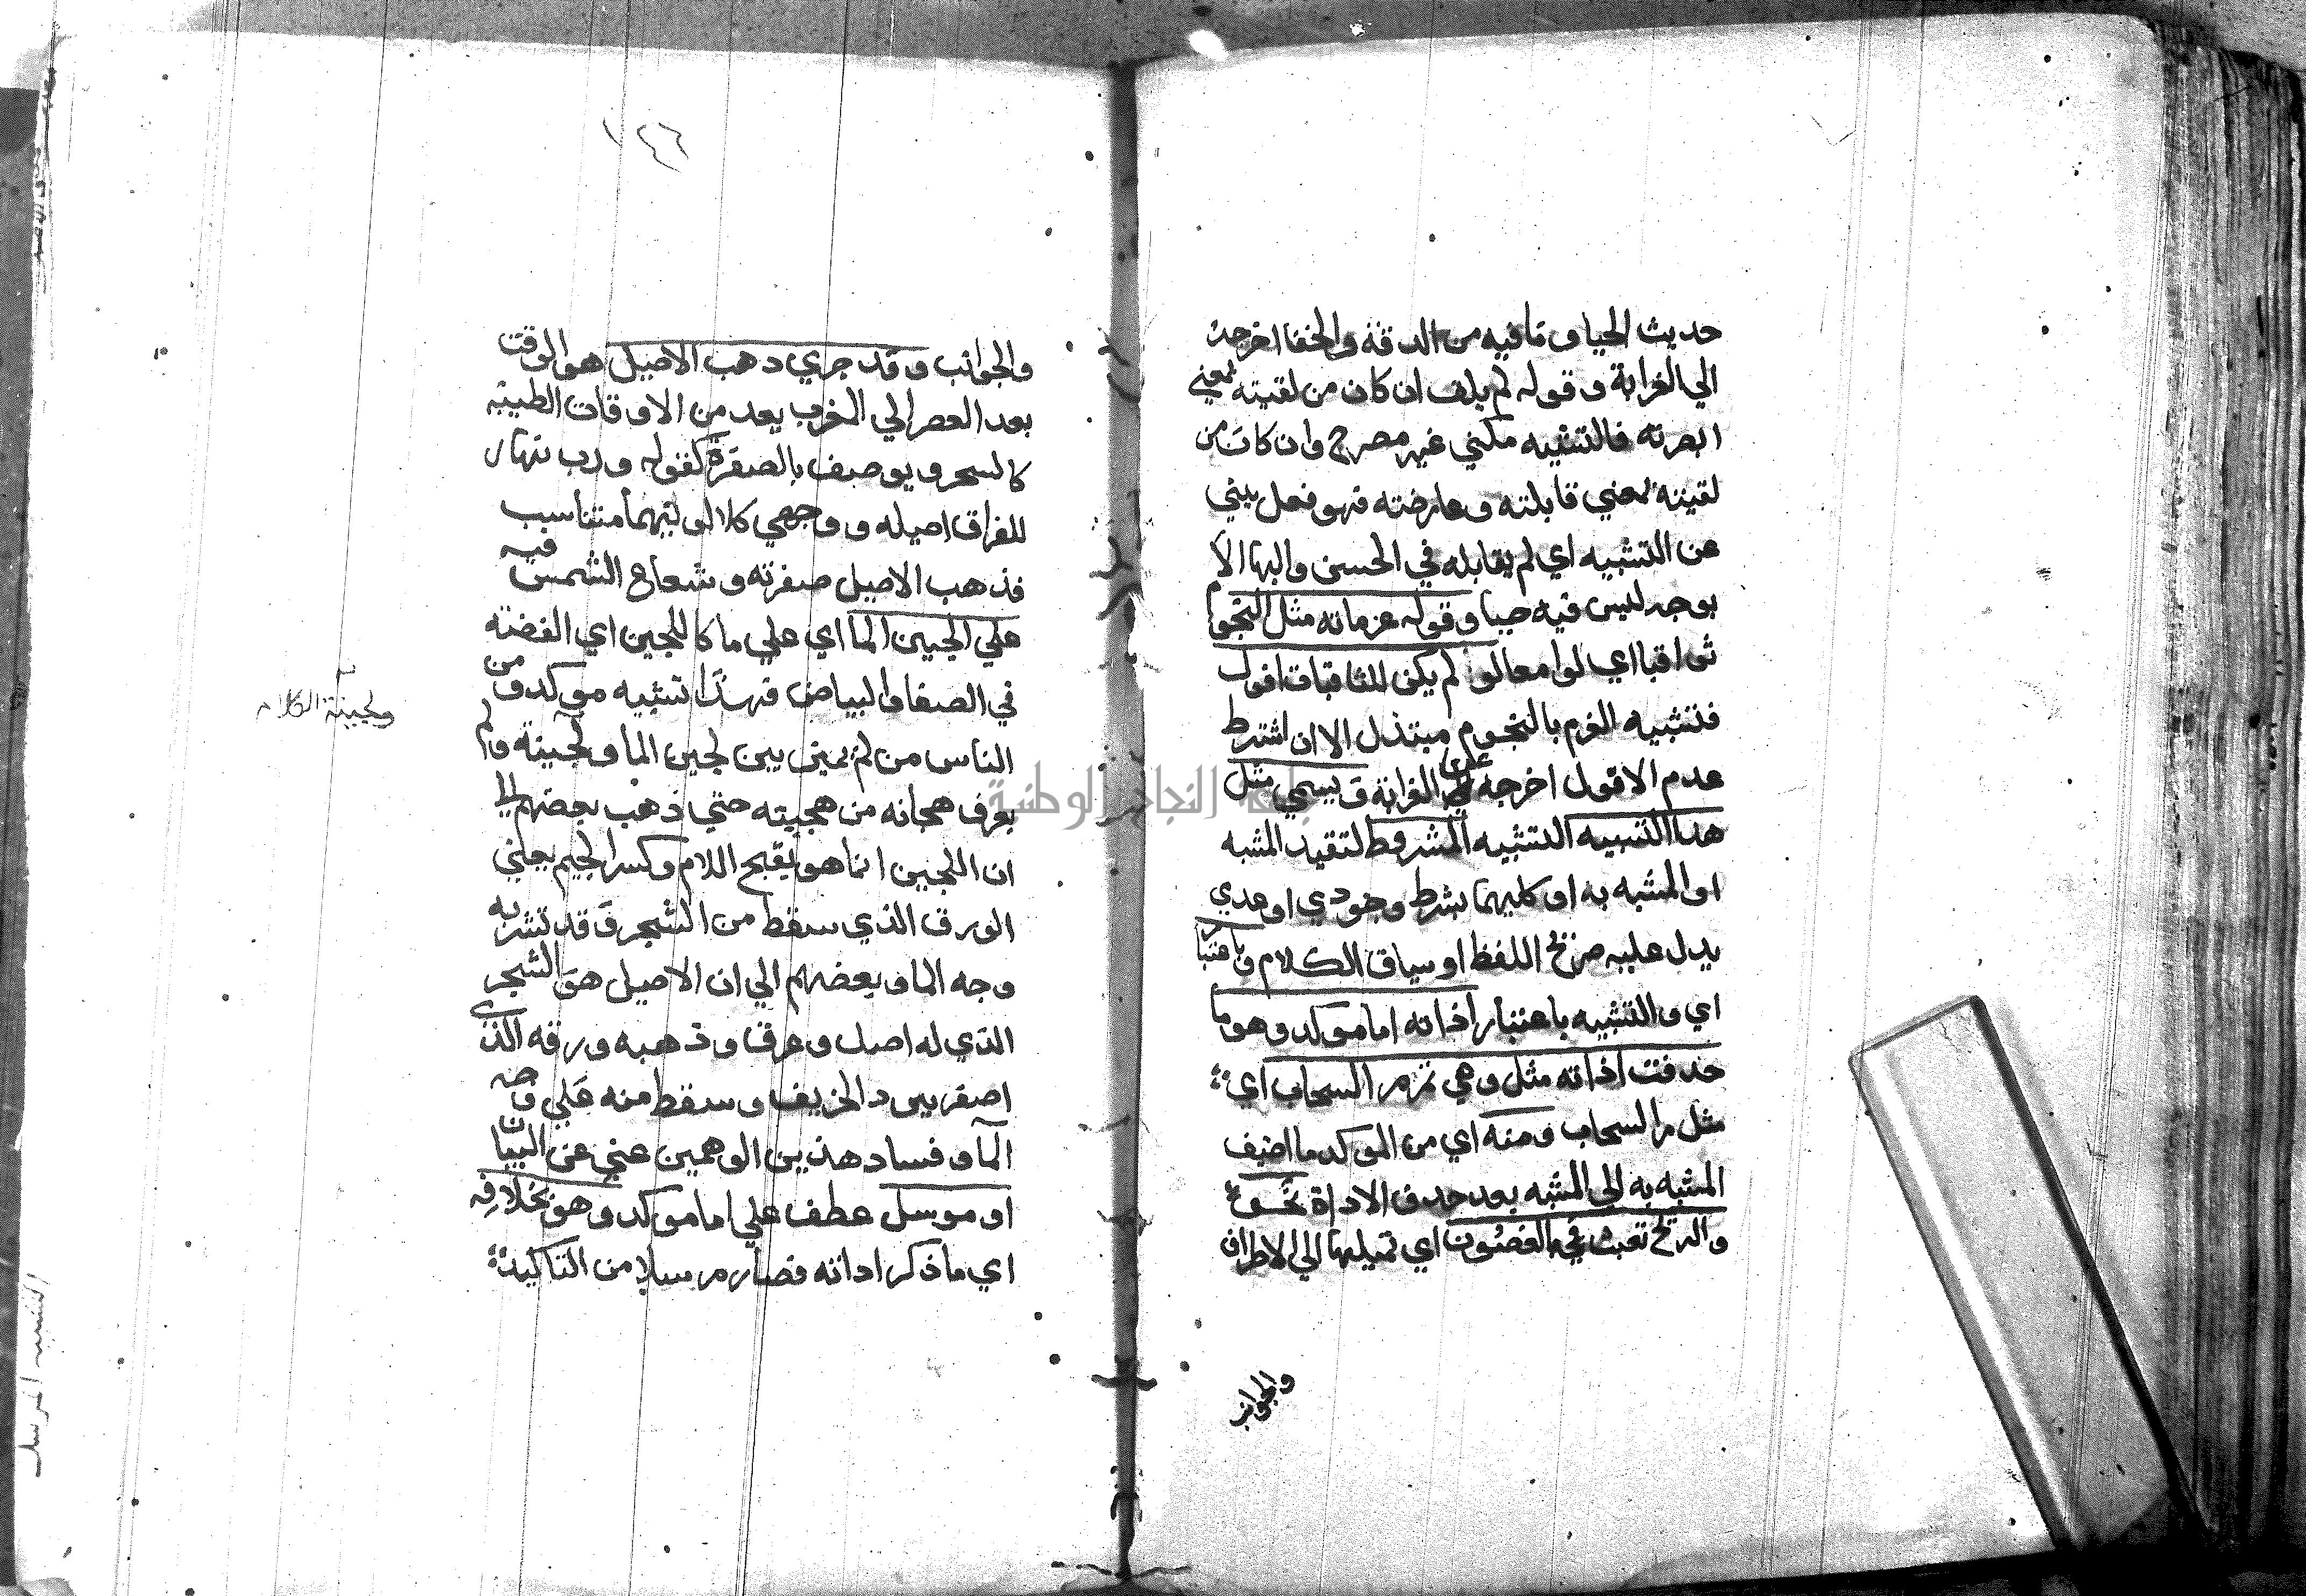 حديث الحيا وما فيه من الدقة والخفا اخرجه
الي الغرابة وقوله لم يلف ان كان من لقيته بمعني
ابصرته فالتشبيه مكني غير مصرح وان كان من
لقيته بمعني قابلته وعارضته فهو فعل يبني
عن التشبيه اي لم يقابله في الحسن والبها الا
بوجه ليس فيه حيا وقوله عزماته مثل النجوم
ثواقبا اي لوامعا لو لم يكن للثاقبات افول
فتشبيه العزم بالنجوم مبتذل الا ان اشتراط
عدم الافول اخرجه الي الغرابة ويسمي مثل
هذا التشبيه التشبيه المشروط لتقيد المشبه
او المشبه به او كليهما بشرط وجودي او عدمي
يدل عليه صريح اللفظ او سياق الكلام وباعتبار
اي والتشبيه باعتبار اداته اما موكد وهو ما
حذفت اداته مثل وهي تمر مر السحاب اي
مثل مر السحاب ومنه اي من الموكد ما اضيف
المشبه به الي المشبه بعد حذف الاداة نحو
والريح تعبث بالغصون اي تميلها الي الاطراف
والجوانب
١٤٦
والجوانب وقد جري ذهب الاصيل هو الوقت
بعد العصر الي المغرب يعد من الاوقات الطيبة
كالسحر ويوصف بالصفرة كقوله ورب نهار
للفراق اصيله ووجهي كلا لونيهما متناسب
فذهب الاصيل صفرته وشعاع الشمس فيه
علي لجين الما اي علي ما كاللجين اي الفضة
في الصفا والبياض فهذا تشبيه موكد ومن
الناس من لم يميز بين لجين الما ولجينه ولم
يعرف هجانه من هجينه حتي ذهب بعضهم الي
ان اللجين انما هو بفتح اللام وكسر الجيم يعني
الورق الذي سقط من الشجر وقد تشبه به
وجه الما وبعضهم الي ان الاصيل هو الشجر
الذي له اصل وعرق وذهبه ورقه الذي
اصفر ببرد الخريف وسقط منه علي وجه
الما وفساد هذين الوهمين غني عن البيان
او مرسل عطف علي اما موكد وهو بخلافه
اي ما ذكر اداته فصار مرسلا من التاكيد
ولجينة الكلام
التشبيه المرسل